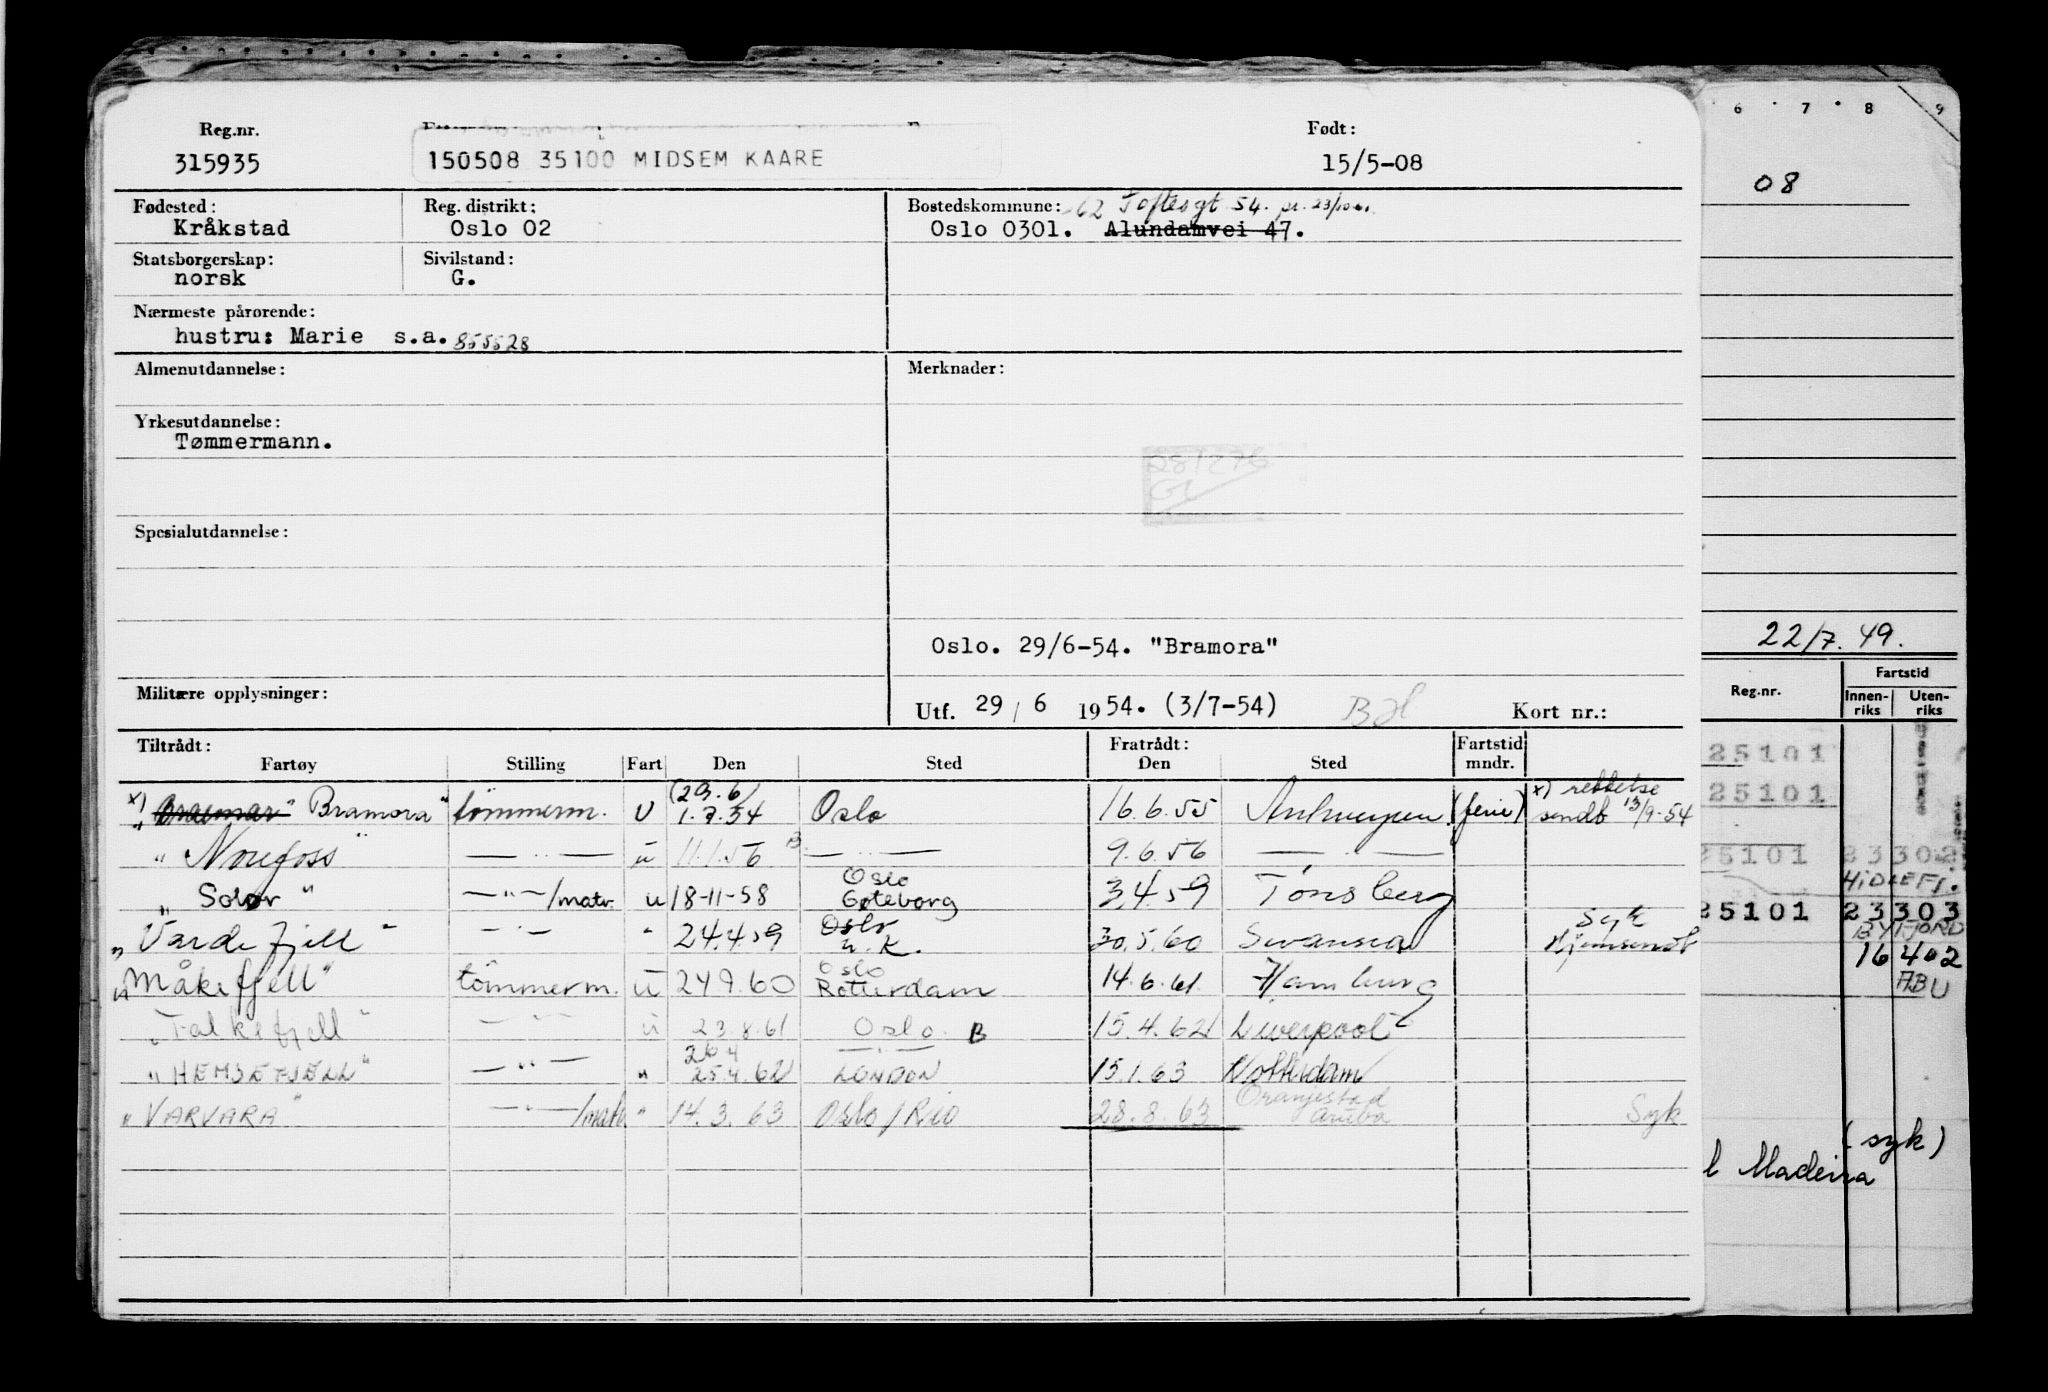 Reg.nr. Født:
315935 150508 35100 MIDSEM KAARE 15/5-08
Fødested: Reg. distrikt: Bostedskommune: 62 Toftesgt 54.
Kråkstad Oslo 02 Oslo 0301. Alundamvei 47.
Statsborgerskap: Sivilstand:
norsk G.
Nærmeste pårørende:
hustru: Marie s.a. 855528
Almenutdannelse: Merknader:
Yrkesutdannelse:
Tømmermann.
Spesialutdannelse:
Oslo. 29/6-54. "Bramora"
Militære opplysninger:
Utf. 29 / 6 1954. (3/7-54) Kort nr.:
Tiltrådt: Fratrådt: Fartstid
Fartøy Stilling Fart Den Sted Den Sted mndr.
(29.6)
x) " Braemar" Bramora" tømmerm. U 1.7.54 Oslo 16.6.55 Antwerpen (ferie) x) rettelse
sendt 13/9-54
" Norefoss" — " — u 11.1.56 B — " — 9.6.56 — " —
Oslo
" Solør " — " — /matr. u 18-11-58 Gøteborg 3.4.59 Tønsberg
" Vardefjell " — " — " 24.4.59 Oslo 30.5.60 Swansea Syk
U.K. Hjemsendt
Oslo
" Måkefjell" tömmerm. u 24.9.60 Rotterdam 14.6.61 Hamburg
" Falkefjell " — " — u 23.8.61 Oslo B 15.4.62 Liverpool
26 4 — " —
" HEMSEFJELL" — " — " 25.4.62 LONDON 15.1.63 Rotterdam
" VARVARA " — " — /matr " 14.3.63 Oslo / Rio 28.8.63 Oranjestad Aruba Syk
6 7 8 9
08
22/7. 49.
Reg.nr. Fartstid
Innenriks Utenriks
25101
25101
25101 23302
HIDLEFJ.
25101 23303
BYFJORD
16402
ABU
(syk)
Madeira